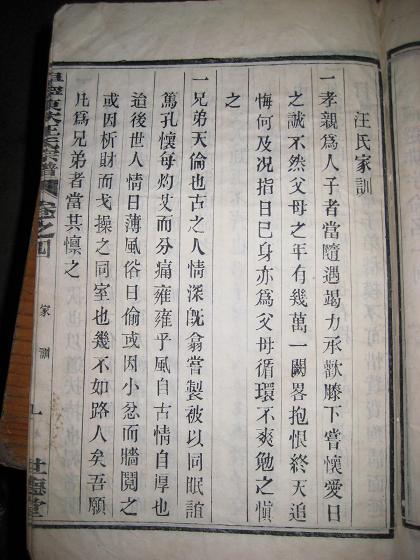 汪氏家訓
一孝親爲人子者當隨遇竭力承歡膝下嘗懷愛日
之誠不然父母之年有幾萬一闕畧抱恨終天追
悔何及况指日已身亦爲父母循環不爽勉之慎
之
一兄弟天倫也古之人情深旣翕嘗製被以同眠誼
篤孔懷每灼艾而分痛雍雍乎風自古情自厚也
迨後世人情日薄風俗日偷或因小忿而牆鬩之
或因析財而戈操之同室也幾不如路人矣吾願
凡爲兄弟者當共懔之
東汪氏宗譜
卷之四
家訓
世德堂